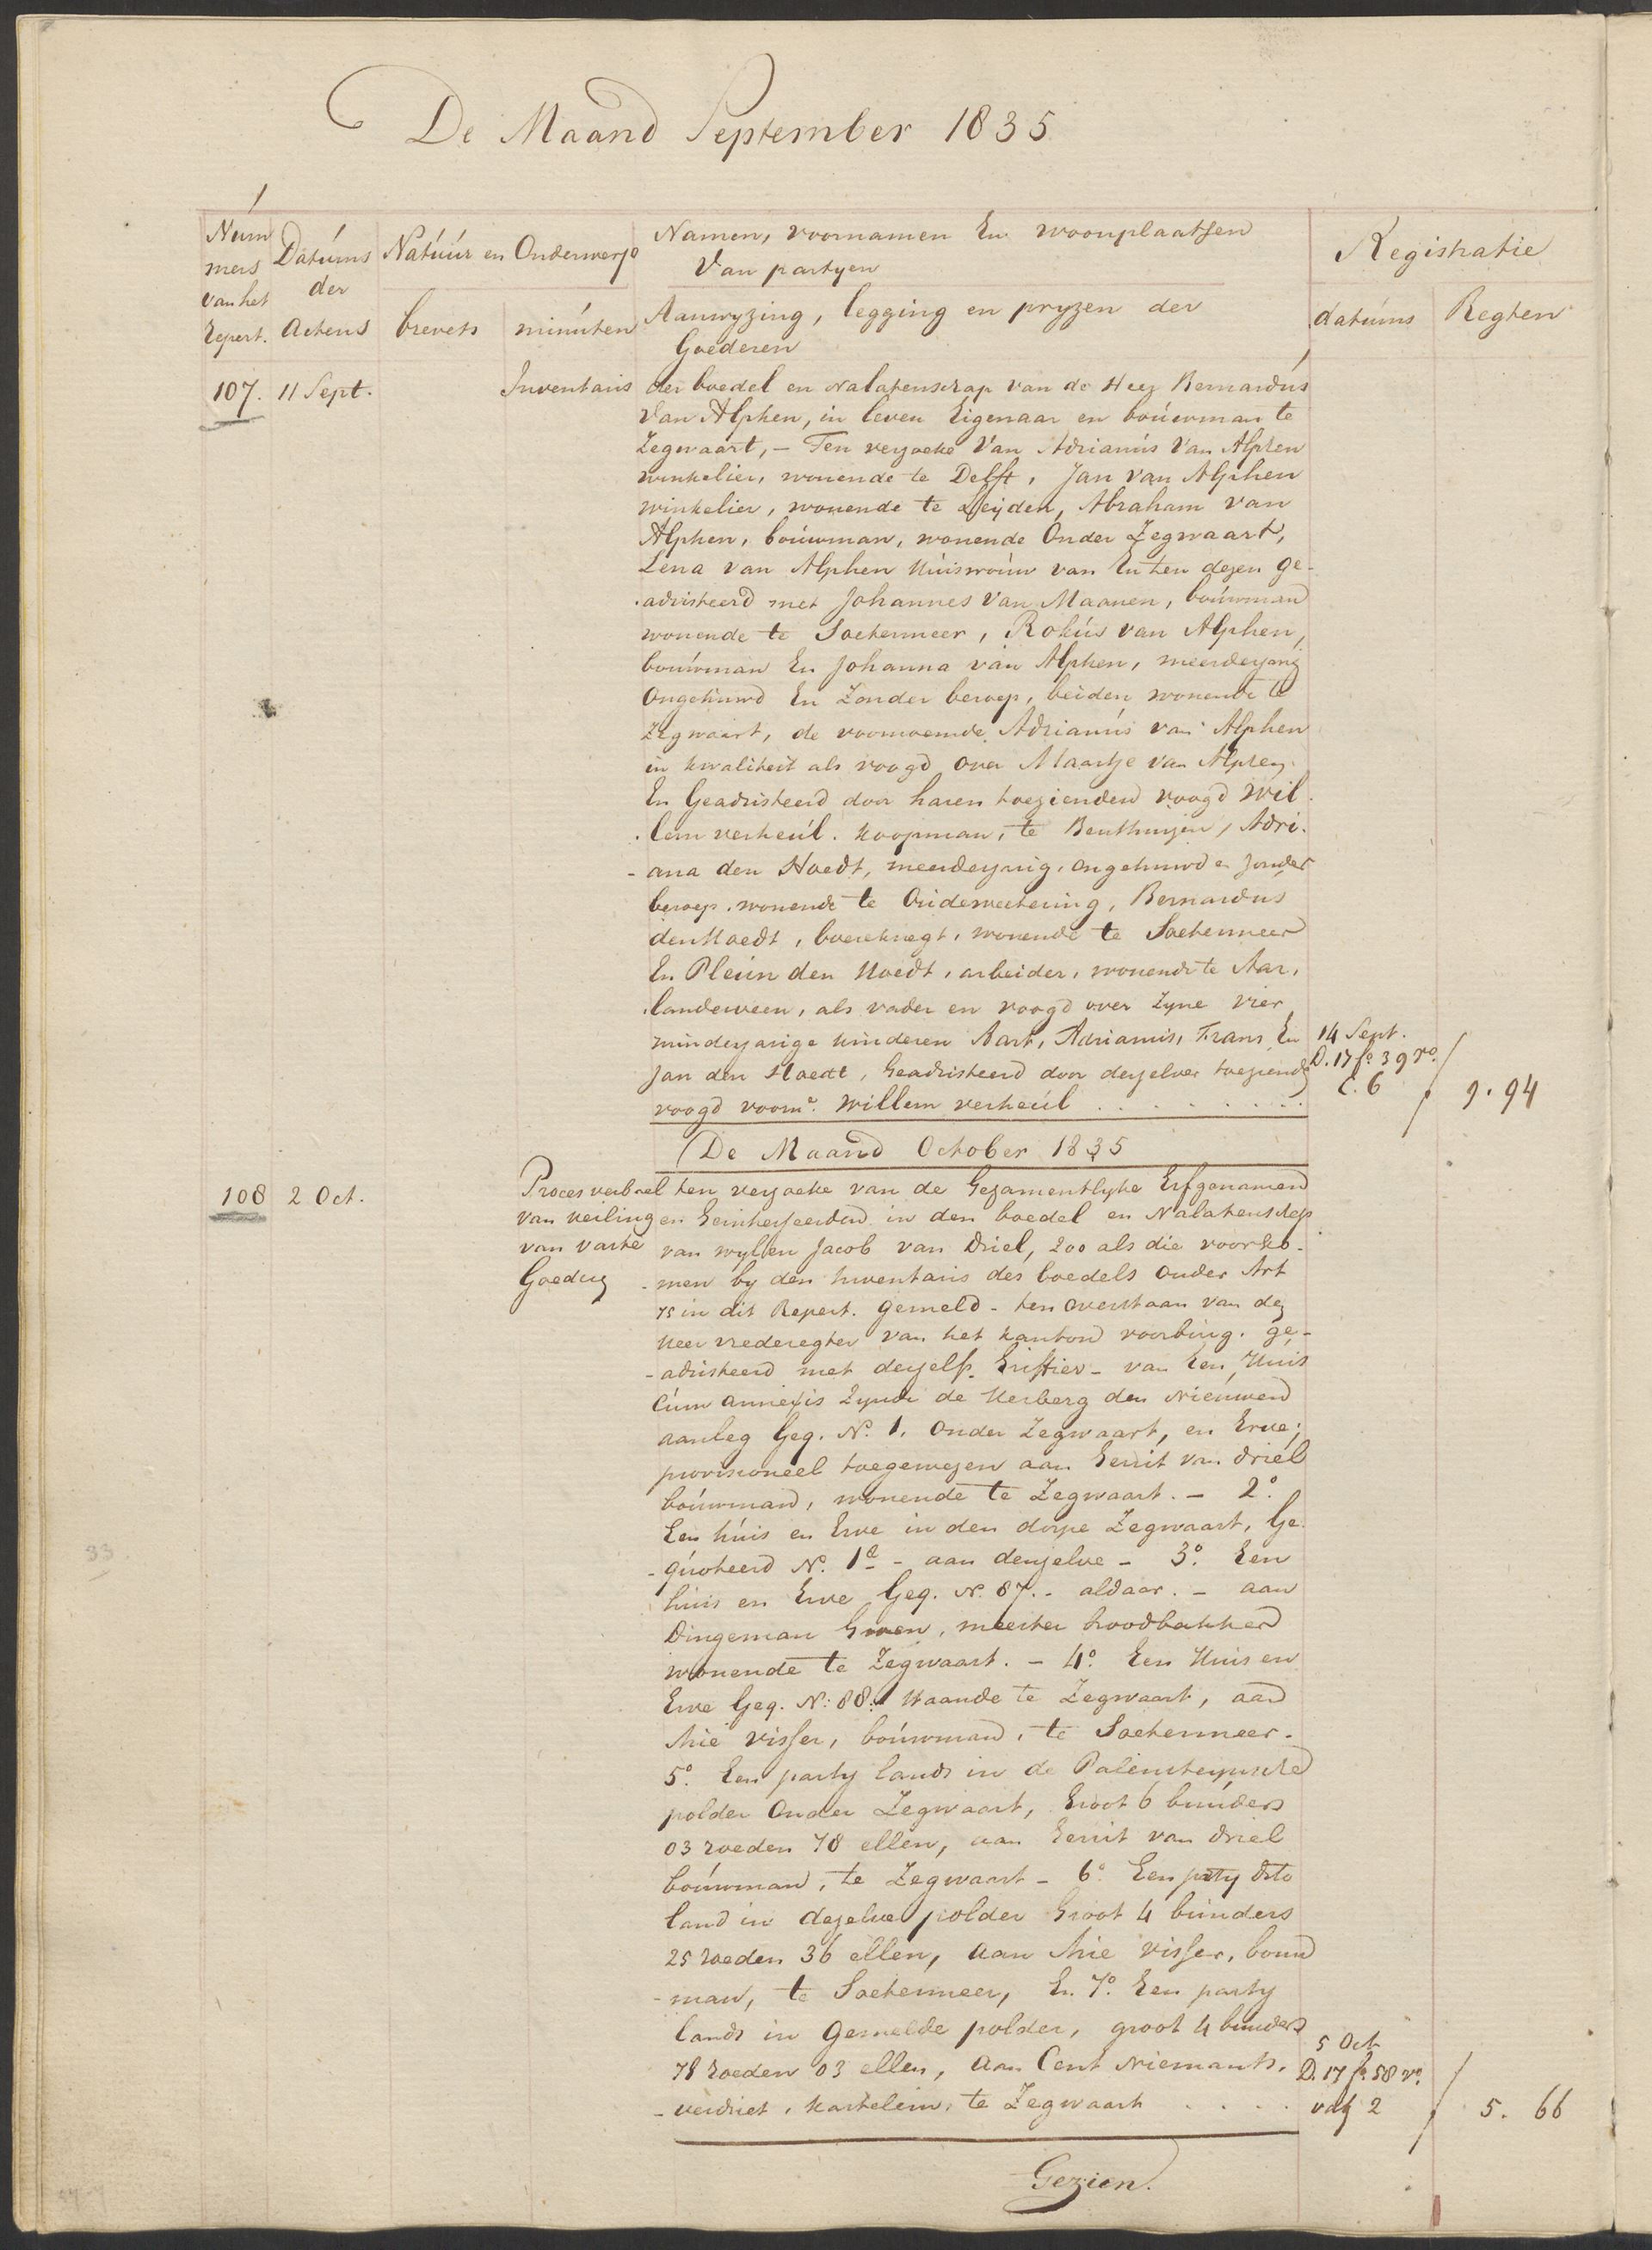 De Maand September 1835
Num
mers
van het
Repert.
Datúms
der
Actens
Natúúr en Onderwerp
brevets
minúten
Namen, voornamen En woonplaatsen
Van partyen
Aanwyzing, legging en pryzen der
Goederen
Registratie
datúms
Regten
107. 11 Sept.
Inventaris der boedel en Nalatenschap van de Heer Bernardus
Van Alphen, in leven Eigenaar en boúwman te
Zegwaart, - Ten verzoeke Van Adrianús Van Alphen
winkelier, wonende te Delft, Jan van Alphen
winkelier, wonende te Leijden, Abraham van
Alphen, boúwman, wonende Onder Zegwaart,
Lena van Alphen Huisvroúw van En ten dezen ge-
adsisteerd met Johannes Van Maanen, boúwman
wonende te Soetermeer, Rokús van Alphen,
boúwman En Johanna van Alphen, meerderjarig
Ongehuwd En Zonder beroep, beiden wonende te
Zegwaart, de voornoemde Adrianús van Alphen
in kwaliteit als voogd over Maartje van Alphen
En Geadsisteerd door haren toezienden voogd Wil
-lem verheúl. koopman, te Benthuizen, Adri-
- ana den Hoedt, meerderjarig, ongehuwd en zonder
beroep, wonende te Oúdeweetering, Bernardus
den Hoedt, boereknegt, wonende te Soetermeer
En Pleún den Hoedt, arbeider, wonende te Aar,
landerveen, als vader en voogd over Zyne vier
minderjarige kinderen Aart, Adrianus, Frans En
Jan den Hoedt, Geadsisteerd door derzelver toeziende
voogd voorne. Willem verheúl . . . . . . .
14 Sept.
D. 17 fo. 39 ro.
C. 6
9. 94
De Maand October 1835
108 2 Oct.
Proces verbael
van veiling
van vaste
Goederen
ten verzoeke van de Gezamentlyke Erfgenamen
en Geinteresseerden in den boedel en Nalatenschap
van wylen Jacob van Driel, zoo als die voorko-
- men by den Inventaris des boedels onder Art
75 in dit Repert. gemeld - ten overstaan van den
Heer vrederegter van het kanton voorbúrg. ge-
- adsisteerd met deszelfs Griffier - van Een Huis
Cúm annexis Zynde de Herberg den Nieúwen
aanleg Geq. No. 1. Onder Zegwaart, en Erve;
provisioneel toegewezen aan Gerrit van driel
boúwman, wonende te Zegwaart. - 2o.
Een húis en Erve in den dorpe Zegwaart, Ge
- qúoteerd No. 1a - aan denzelve - 3o. Een
húis en Erve Geq. No. 87. - aldaar. - aan
Dingeman Groen, meester broodbakker
wonende te Zegwaart. - 4o. Een Huis en
Erve Geq. No: 88: staande te Zegwaart, aan
Arie visser, boúwman, te Soetermeer.
5o. Een party lands in de Palensteynsche
polder Onder Zegwaart, Groot 6 búnders
03 roeden 78 ellen, aan Gerrit van driel
boúwman, te Zegwaart - 6o. Een party dito
land in dezelve polder Groot 4 búnders
25 roeden 36 ellen, aan Arie visser, bouw
- man, te Soetermeer, En 7o. Een party
lands in Gemelde polder, groot 4 bunders
78 roeden 03 ellen, aan Cent Niemants.
- verdriet, kastelein, te Zegwaart . . . .
5 Oct
D. 17 fo. 58 vo.
vak 2
5. 66
Gezien.
33